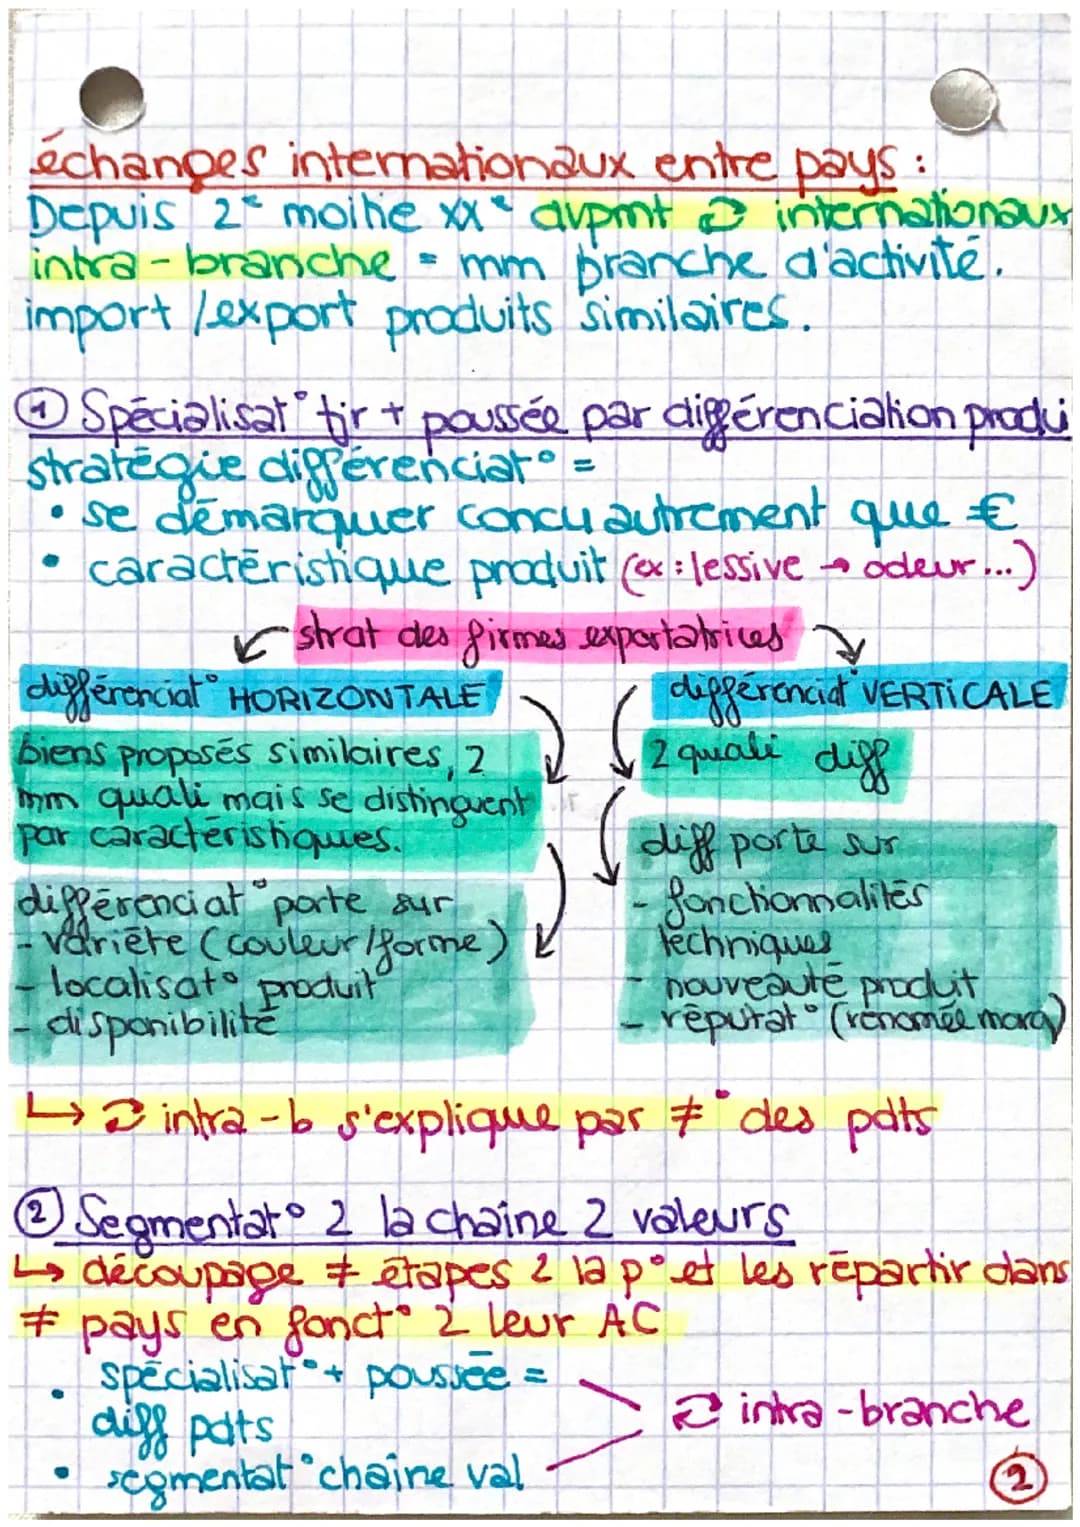 échanges internationaux entre pays :
Depuis 2e moitié XXe dvpmt ⇄ internationaux
intra-branche = mm branche d'activité.
import/export produits similaires.
① Spécialisat° tjr + poussée par différenciation produi
stratégie différenciat° =
• se démarquer concu autrement que €
• caractéristique produit (ex : lessive → odeur...)
strat des firmes exportatrices
différenciat° HORIZONTALE
biens proposés similaires, 2
mm quali mais se distinguent
par caractéristiques.
différenciat° porte sur
- variété (couleur/forme)
- localisat° produit
- disponibilité
différenciat° VERTICALE
2 quali diff
diff porte sur
- fonctionnalités
techniques
- nouveauté produit
- réputat° (renomée marq)
↳ ⇄ intra-b s'explique par ≠° des pdts
② Segmentat° 2 la chaîne 2 valeurs
↳ découpage ≠ étapes 2 la p° et les répartir dans
≠ pays en fonct° 2 leur AC
• spécialisat° + poussée =
diff pdts
• segmentat° chaîne val
⇄ intra-branche
②